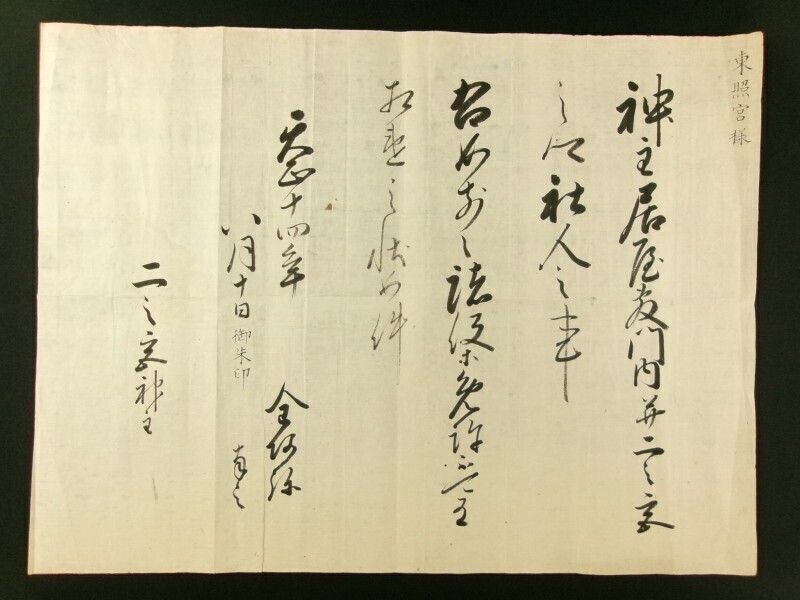 東照宮様
神主居屋敷門内并二之宮
之江社人之事
右如前々諸役令免許不可有
相違之状如件
天正十四年
八月十日御朱印
全阿弥
奉之
二之宮神主